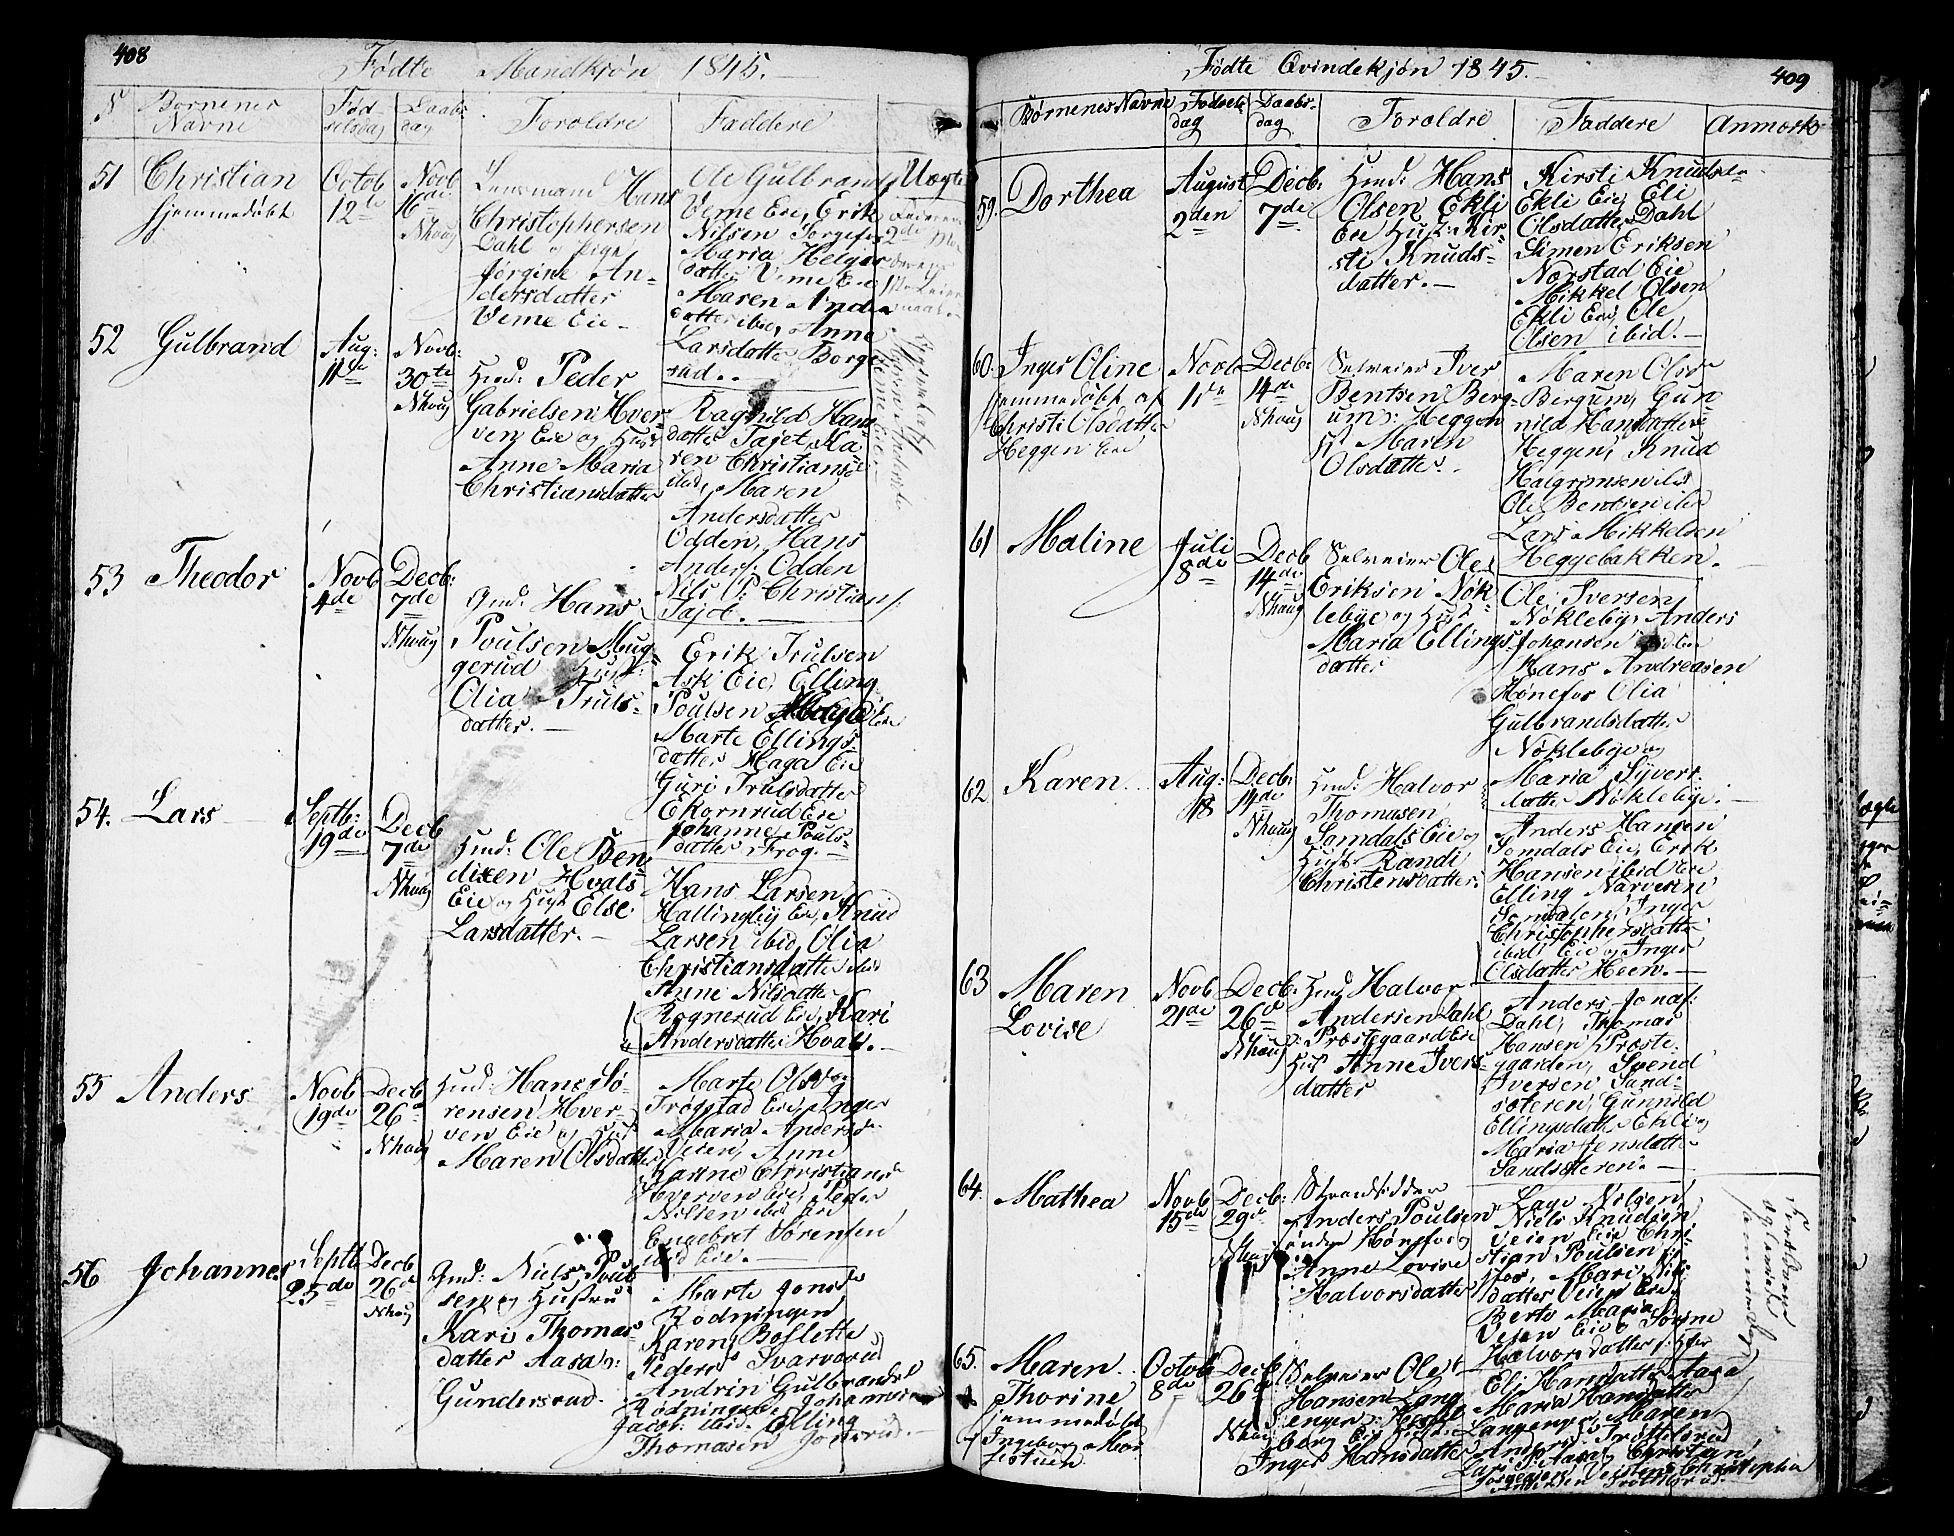 408
Fødte Mandkjøn 1845.
N
Børnenes
Navne
Fød-
selsdag
Daabs
dag
Foroldre
Faddere
51
Christian
hjemmedøbt
Octob
12te
Novb
16de
Nhaug
Lensmand Hans
Christophersen
Dahl og Pige
Jørgine An-
dersdatter
Veme Eie
Ole Gulbrands
Veme Eie, Erik
Nilsen
Maria Helge
datter Veme Eie
Maren Anders
datter ibid, Anne
Larsdatter Borge
rud.
Uægte
52
Gulbrand
Aug:
11te
Novb:
30te
Nhaug
Hmd: Peder
Gabrielsen Hver
ven Eie og Hust
Anne Maria
Christiansdatter
Ragnild Hans
datter Tajet, Ka
ren Christians
ibid, Maren
Andersdatter
Odden, Hans
Anders: Odden
Nils P: Christians:
Tajet.
53
Theodor
Novb
4de
Decb:
7de
Nhaug
Gmd: Hans
Poulsen Mug
gerud Hust:
Olia Truls-
datter.
Erik Trulsen
Ask Eie, Elling
Poulsen Eie
Marte Ellings
datter Haga Eie
Guri Trulsdatter
Ekornrud Eie
Johanne Pouls-
datter Frog.
54.
Lars
Septb:
19de
Decb
7de
Nhaug
Hmd: Ole Ben
dixen Hvals
Eie og Hust Else
Larsdatter.
Hans Larsen
Hallingby Eie, Knud
Larsen ibid, Olia
Christiansdatter ibid
Anne Nilsdatter
Rognerud Eie, Kari
Andersdatter Hvals.
55
Anders
Novb
19de
Decb
26de
Nhaug
Hmd: Hans Sø-
rensen Hver-
ven Eie og Hust
Maren Olsdatter
Marte Olsd
Trøgstad Eie, Inger
Maria Andersd
Veien, Anne
Karine Christians
Hverven Eie, Peder
Nilsen ibid Eie
Engebret Sørensen
ibid Eie.
56
Johannes
Septb
25de
Decb
26de
Nhaug
Gmd: Niels Poul
sen og Hustru
Kari Thomas-
datter Aasa
Gundersrud.
Marte Jons
Rødningen
Karen Boflette
Peders Svarverud
Andrin Gulbrandsd
Rødningen, Johannes
Jacobs: ibid: Elling
Thomasen
409
Fødte Qvindekjøn 1845.
Børnenes Navne
Fødsels
dag
Daabs-
dag
Foroldre
Faddere
Anmærk
59.
Dorthea
August
2den
Decb:
7de
Hmd: Hans
Olsen Ekli
Eie Hust: Kir-
sti Knuds-
datter.
Kirsti Knudsd
Ekli Eie, Eli
Olsdatter Dahl
Simen Eriksen
Norstad Eie
Mikkel Olsen
Ekli Eie, Ole
Olsen ibid.
60.
Inger Oline
hjemmedøbt af
Christi Olsdatter
Heggen Eie
Novb
11te
Decb:
14de
Nhaug
Selveier Iver
Bentsen Berg-
um: Heggen
H: Maren
Olsdatter.
Maren Olsd
Bergum, Gun-
nild Hansdatter
Heggen, Knud
Halgrimsen ibid
Ole Bentsen ibid
Lars Mikkelsen
Heggebakken.
61
Maline
Juli
8de
Decb
14de
Nhaug
Selveier Ole
Eriksen Nøk-
lebye og Hust
Maria Ellings-
datter
Ole Iversen
Nøkleby, Anders
Johansen ibid Eie
Hans Andreasen
Hønefos Olia
Gulbrandsdatter
Nøklebye og
Maria Syvert-
datter Nøklebye.
62
Karen
Aug:
18
Decb:
14de
Nhaug
Hmd: Halvor
Thomasen
Somdals Eie og
Hust: Randi
Christensdatter.
Anders Hansen
Somdals Eie, Erik
Hansen ibid Eie
Elling Narvesen
Somdalen, Inger
Christophersdatter
ibid Eie og Inger
Olsdatter Heen.
63
Maren
Lovise
Novb
21de
Decb:
26de
Nhaug
Hmd Halvor
Andersen Dahl
Præstegaard Eie
Hust Anne Ivers-
datter
Anders Jonas:
Dahl, Thomas
Hansen Præste-
gaarden, Svend
Iversen Sand-
sæteren, Gunnild
Ellingsdatter Ekli og
Maria Jensdatter
Sandsæteren.
64.
Mathea
Novb
15de
Decb:
29de
Nhaug
Strandsidder
Anders Poulsen
Hønefos
Anne Lovise
Halvorsdatter
Lage Nilsen
Niels Knudsen
Veien Eie Chri-
stian Poulsen H:
fos, Mari Nils
datter Veien Eie
Berte Maria
Veien Eie Sørine
Halvorsdatter: Hfos
65.
Maren
Thorine
hjemmedøbt
Ingeborg Mor
Octob
8de
Decb
26de
Nhaug
Selveier Ole
Hansen Lang
Inger Hansdatter
Eli Hansdatter Aasa
Maria Hansdatter
Langenger, Maren
Anders: Trøttelsrud
Christian